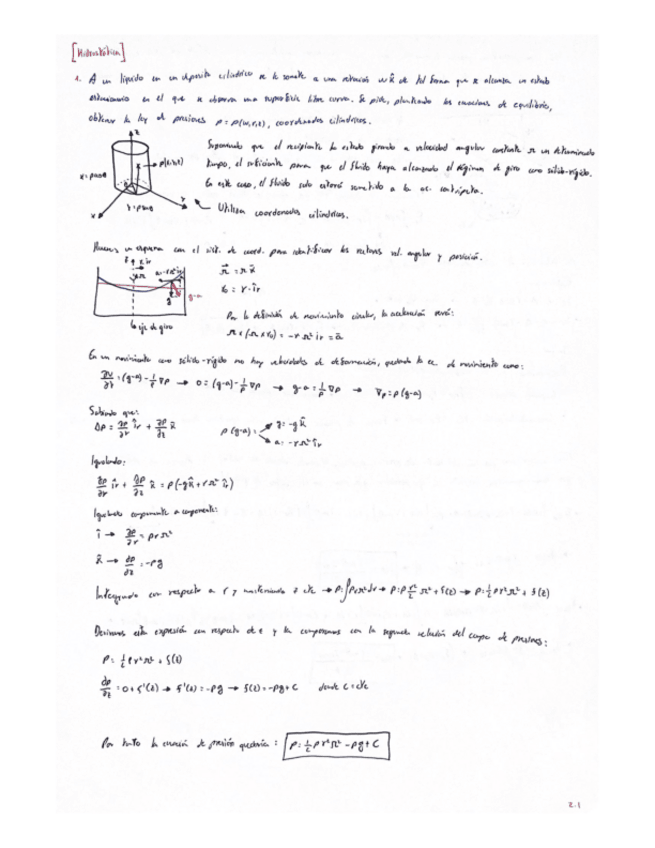 [Hidrostática]
1. A un líquido en un deposito cilíndrico se le somete a una rotación ω k̂ de tal forma que se alcanza un estado
estacionario en el que se observa una superficie libre curva. Se pide, planteando las ecuaciones de equilibrio,
obtener la ley de presiones p = p(ω,r,z), coordenadas cilíndricas.
Suponiendo que el recipiente ha estado girando a velocidad angular constante Ω un determinado
tiempo, el suficiente para que el fluido haya alcanzado el régimen de giro como sólido-rígido.
En este caso, el fluido solo estará sometido a la ac. centrípeta.
Utiliza coordenadas cilíndricas.
z
x
y
Hacemos un esquema con el sist. de coord. para identificar los vectores vel. angular y posición.
Ω = Ω k̂
r₀ = r·îr
g-a
eje de giro
Por la definición de movimiento circular, la aceleración será:
Ω×(Ω×r₀) = -rΩ² îr = ā
En un movimiento como sólido-rígido no hay velocidades de deformación, quedando la ec. de movimiento como:
= (g-a) - 1/ρ ∇p → 0 = (g-a) - 1/ρ ∇p → g-a = 1/ρ ∇p → ∇p = ρ(g-a)
Sabiendo que:
Δp = ∂p/∂r îr + ∂p/∂z k̂
ρ(g-a) = g = -g k̂
a = -rΩ² îr
Igualando:
∂p/∂r îr + ∂p/∂z k̂ = ρ(-g k̂ + rΩ² îr)
Igualamos componente a componente:
î → ∂p/∂r = ρrΩ²
k̂ → ∂p/∂z = -ρg
Integrando con respecto a r y manteniendo z cte → p = ∫ρrΩ² dr → p = ρ r²/2 Ω² + f(z) → p = 1/2 ρr²Ω² + f(z)
Derivamos esta expresión con respecto de z y la comparamos con la segunda relación del campo de presiones:
p = 1/2 ρr²Ω² + f(z)
∂p/∂z = 0 + f'(z) → f'(z) = -ρg → f(z) = -ρg + C donde C = cte
Por tanto la ecuación de presión quedaría: p = 1/2 ρr²Ω² - ρg + C
2.1